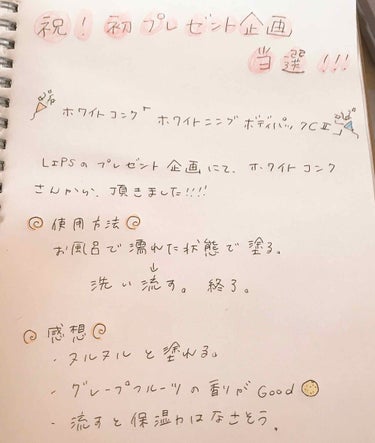 祝！初プレゼント企画
当選!!!
ホワイトコンク「ホワイトニング ボディパック CⅡ」
LIPSのプレゼント企画にて、ホワイトコンク
さんから、頂きました!!!!
使用方法
お風呂で濡れた状態で塗る。
↓
洗い流す。終了。
感想
・ヌルヌルと塗れる。
・グレープフルーツの香りがGood
・流すと保湿力はなさそう。